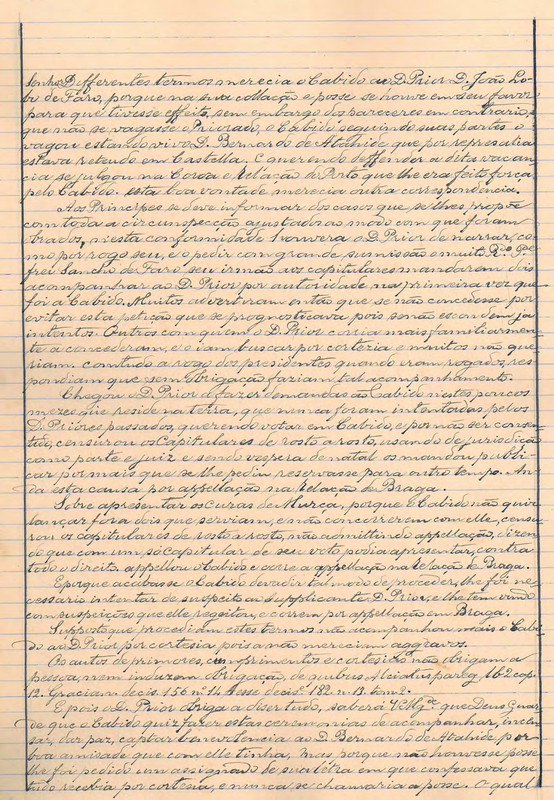 Senhor Differentes termos merecia o Cabido ao D. Prior D. João Lo-
bo de Faro, porque na sua collação e posse se houve em seu favor
para que tivesse effeito, sem embargo dos pareceres em contrario, e
que não se vagasse o Priorado, o Cabido seguindo suas partes o
vagou estando vivo D. Bernardo de Atahide que por represalia
estava retendo em Castella. E querendo deffender a dita vacan-
cia se julgou na Coroa e Relação do Porto que lhe era feita força
pelo Cabido. esta boa vontade merecia outra correspondencia.
Aos Principes se deve informar dos casos que se lhes propõe
com toda a circunspecção ajustados ao modo com que foram
obrados, nesta conformidade houvera o D. Prior de narrar, co-
mo por rogo seu, e o pedir com grande summissão o muito R.do P.e
frei Sancho de Faro seu irmão aos capitulares mandaram dois
acompanhar ao D. Prior por autoridade na primeira vez que
foi a Cabido. Muitos advertiram então que se não concedesse por
evitar esta petição que se prognosticava pois se não escondem já
intentos. Outros com quem o D. Prior corria mais familiarmen-
te a concederam, e o iam buscar por cortezia e muitos não que-
riam. comtudo a rogo dos presidentes quando eram rogados, res-
pondiam que sem obrigação faziam tal acompanhamento.
Chegou o D. Prior a fazer demandas ao Cabido nestes poucos
mezes que reside na terra, que nunca foram intentadas pelos
D. Priores passados, querendo votar em Cabido, e por não ser consen-
tido, censurou os Capitulares de rosto a rosto, usando de jurisdicção
como parte e juiz e sendo vespera de natal os mandou publi-
car por mais que se lhe pediu reservasse para outro tempo. An-
da esta causa por appellação na Relação de Braga.
Sobre apresentar os curas de Murca, porque o Cabido não quiz
lançar fora dois que serviam, e não concorrerem com elle, censu-
rou os capitulares de rosto a rosto, não admittindo appellação, dizen-
do que com um só capitular de seu voto podia apresentar, contra
todo o direito. appellou o Cabido e corre a appellação na Relação de Braga.
E porque acabasse o Cabido de vadir tal modo de proceder, lhe foi ne-
cessario intentar de suspeito ao Supplicante D. Prior, e lhe tem vindo
com suspeições que elle regeitou, e correm por appellação em Braga.
Supposto que procediam estes termos não acompanhou mais o Cabi-
do ao D. Prior por cortesia pois a não mereciam aggravos.
Os autos de primores, cumprimentos e cortesias não obrigam a
pessoa, nem induzem obrigação, de quibus Alciatus
12. Gracian decis. 156 nº 14 decisº 182. n. 13. tom 2.
E pois o D. Prior obriga a dizer tudo, saberá V. Mg.de que Deus Guar-
de que o Cabido quiz fazer estas ceremonias de acompanhar, incen-
sar, dar paz, captar benevolencia ao D. Bernardo de Atahide por
boa amisade que com elle tinha, Mas porque não houvesse posse
lhe foi pedido um assignado de sua letra em que confessava que
tudo recebia por cortesia, e nunca se chamaria a posse. O qual